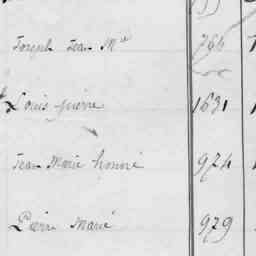 Joseph Jean Mie 766
Louis pierre 1631
Jean Marie honoré 974
Pierre Marie 979